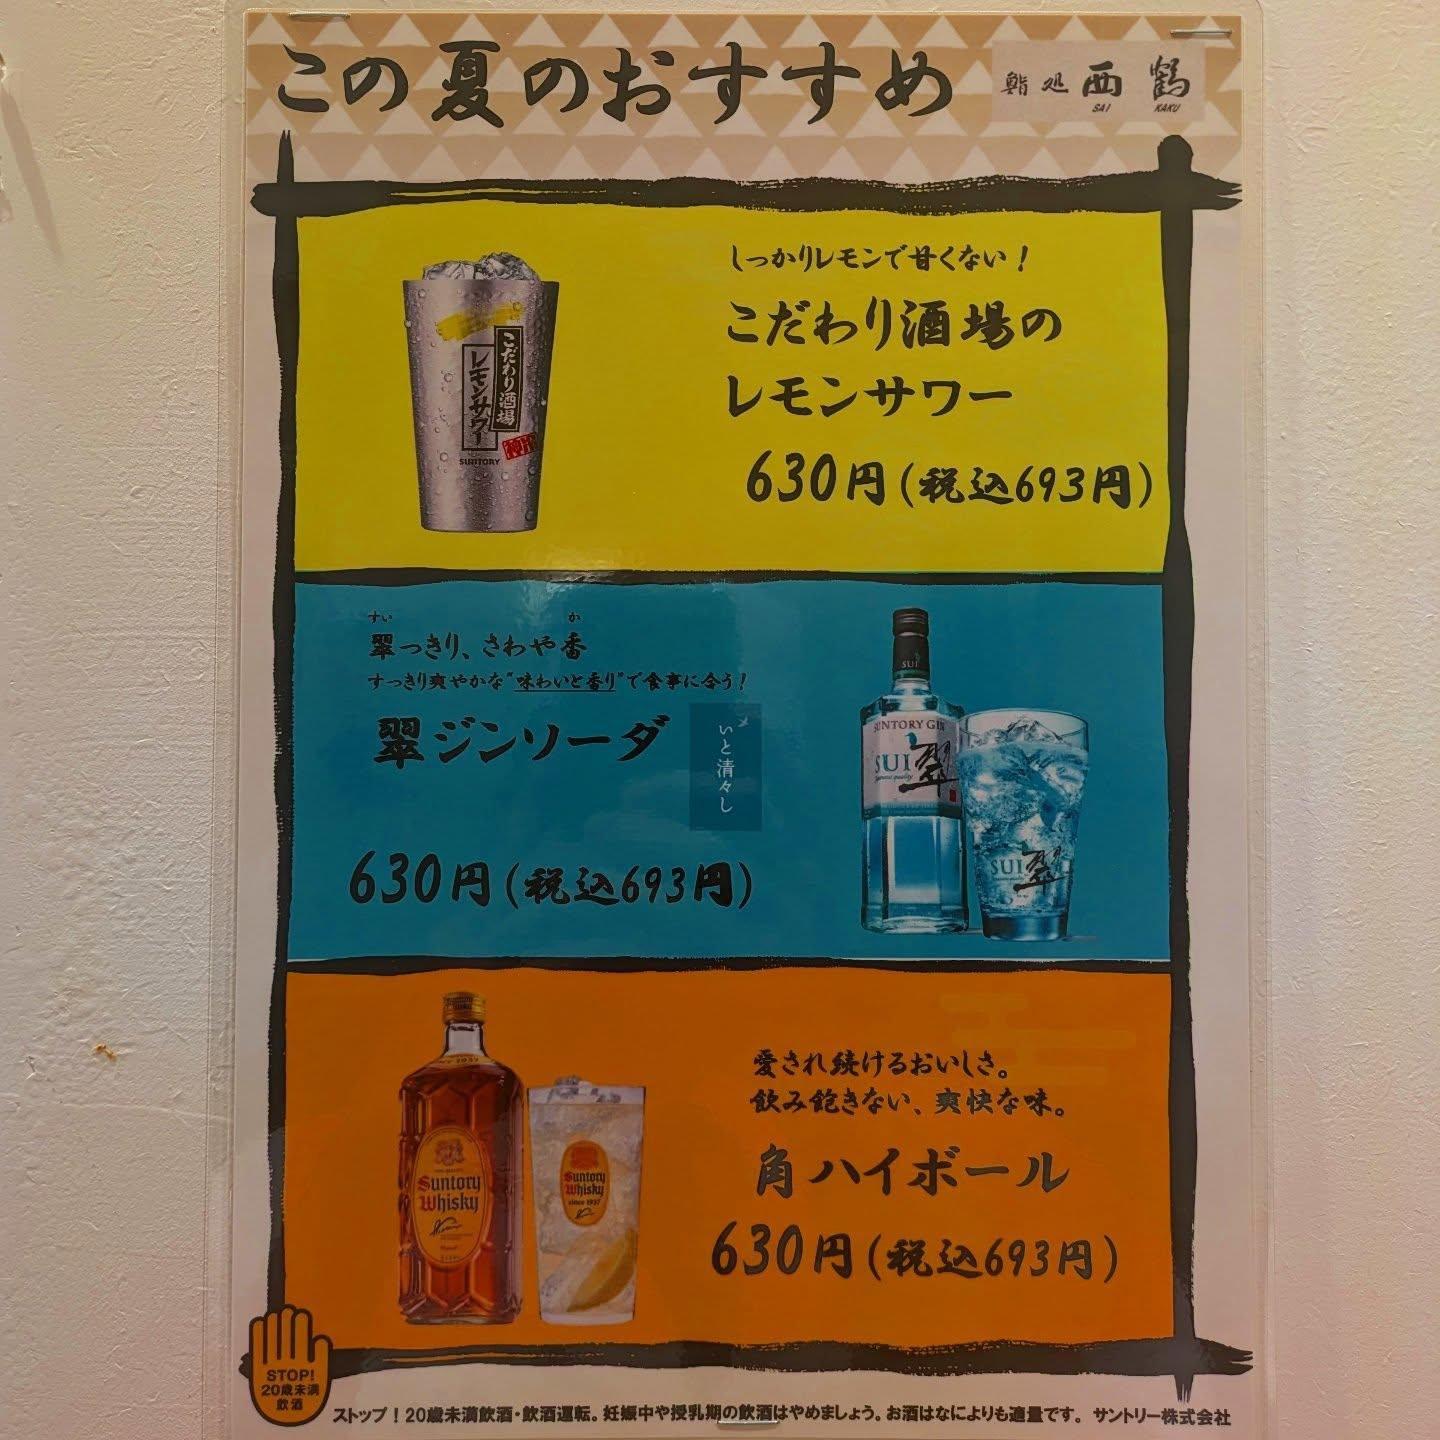 この夏のおすすめ
鮨処 西鶴
SAI KAKU
しっかりレモンで甘くない！
こだわり酒場の
レモンサワー
630円(税込693円)
こだわり酒場
レモンサワー
SUNTORY
すい か
翠っきり、さわや香
すっきり爽やかな"味わいと香り"で食事に合う！
翠ジンソーダ
いと清々し
630円(税込693円)
SUI
SUNTORY GIN
SUI 翠
Japanese quality
SUI 翠
愛され続けるおいしさ。
飲み飽きない、爽快な味。
角ハイボール
630円(税込693円)
1937
Suntory
Whisky
Suntory
Whisky
since 1937
STOP!
20歳未満
飲酒
ストップ！20歳未満飲酒・飲酒運転。妊娠中や授乳期の飲酒はやめましょう。お酒はなによりも適量です。 サントリー株式会社